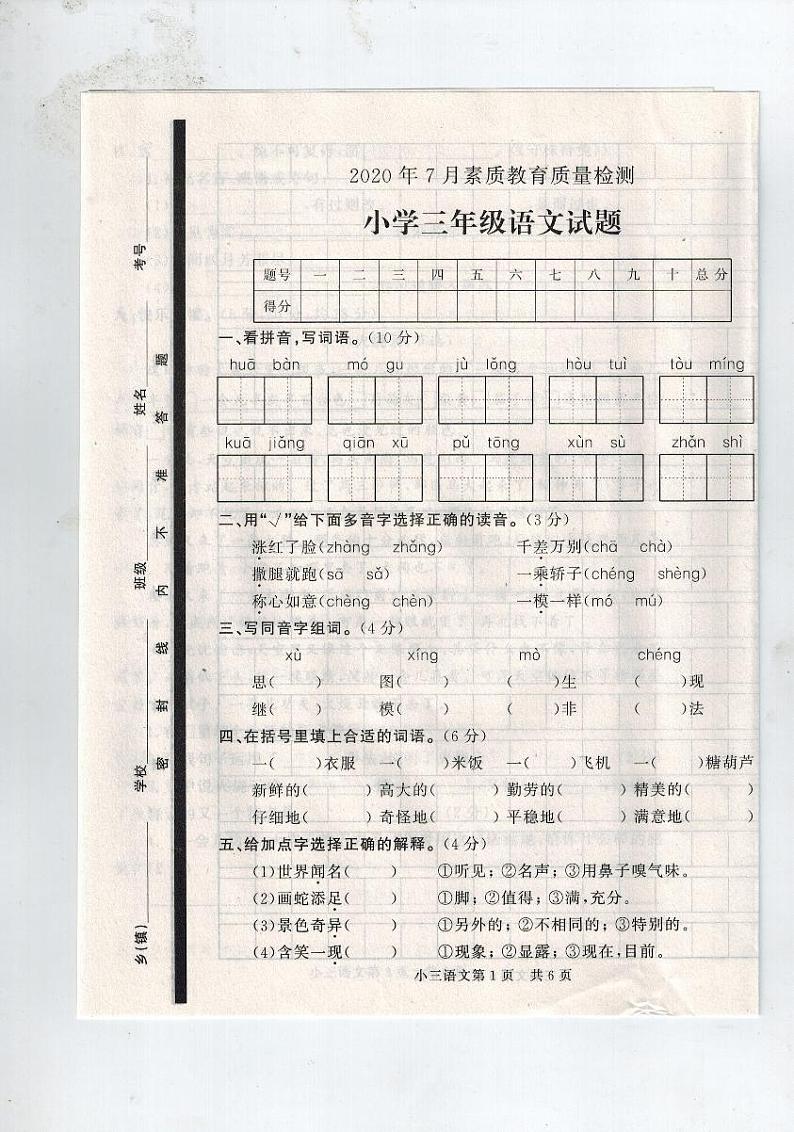 2020年7月素质教育质量检测
小学三年级语文试题
题号 一 二 三 四 五 六 七 八 九 十 总分
得分
一、看拼音,写词语。(10分)
huā bàn mó gu jù lǒng hòu tuì tòu míng
kuā jiǎng qiān xū pǔ tōng xùn sù zhǎn shì
二、用“√”给下面多音字选择正确的读音。(3分)
涨红了脸(zhàng zhǎng) 千差万别(chā chà)
撒腿就跑(sā sǎ) 一乘轿子(chéng shèng)
称心如意(chèng chèn) 一模一样(mó mú)
三、写同音字组词。(4分)
xù xíng mò chéng
思( ) 图( ) ( )生 ( )现
继( ) 模( ) ( )非 ( )法
四、在括号里填上合适的词语。(6分)
一( )衣服 一( )米饭 一( )飞机 一( )糖葫芦
新鲜的( ) 高大的( ) 勤劳的( ) 精美的( )
仔细地( ) 奇怪地( ) 平稳地( ) 满意地( )
五、给加点字选择正确的解释。(4分)
(1)世界闻名( ) ①听见;②名声;③用鼻子嗅气味。
(2)画蛇添足( ) ①脚;②值得;③满,充分。
(3)景色奇异( ) ①另外的;②不相同的;③特别的。
(4)含笑一现( ) ①现象;②显露;③现在,目前。
小三语文第1页 共6页
乡(镇) 学校 班级 姓名 考号
密 封 线 内 不 准 答 题